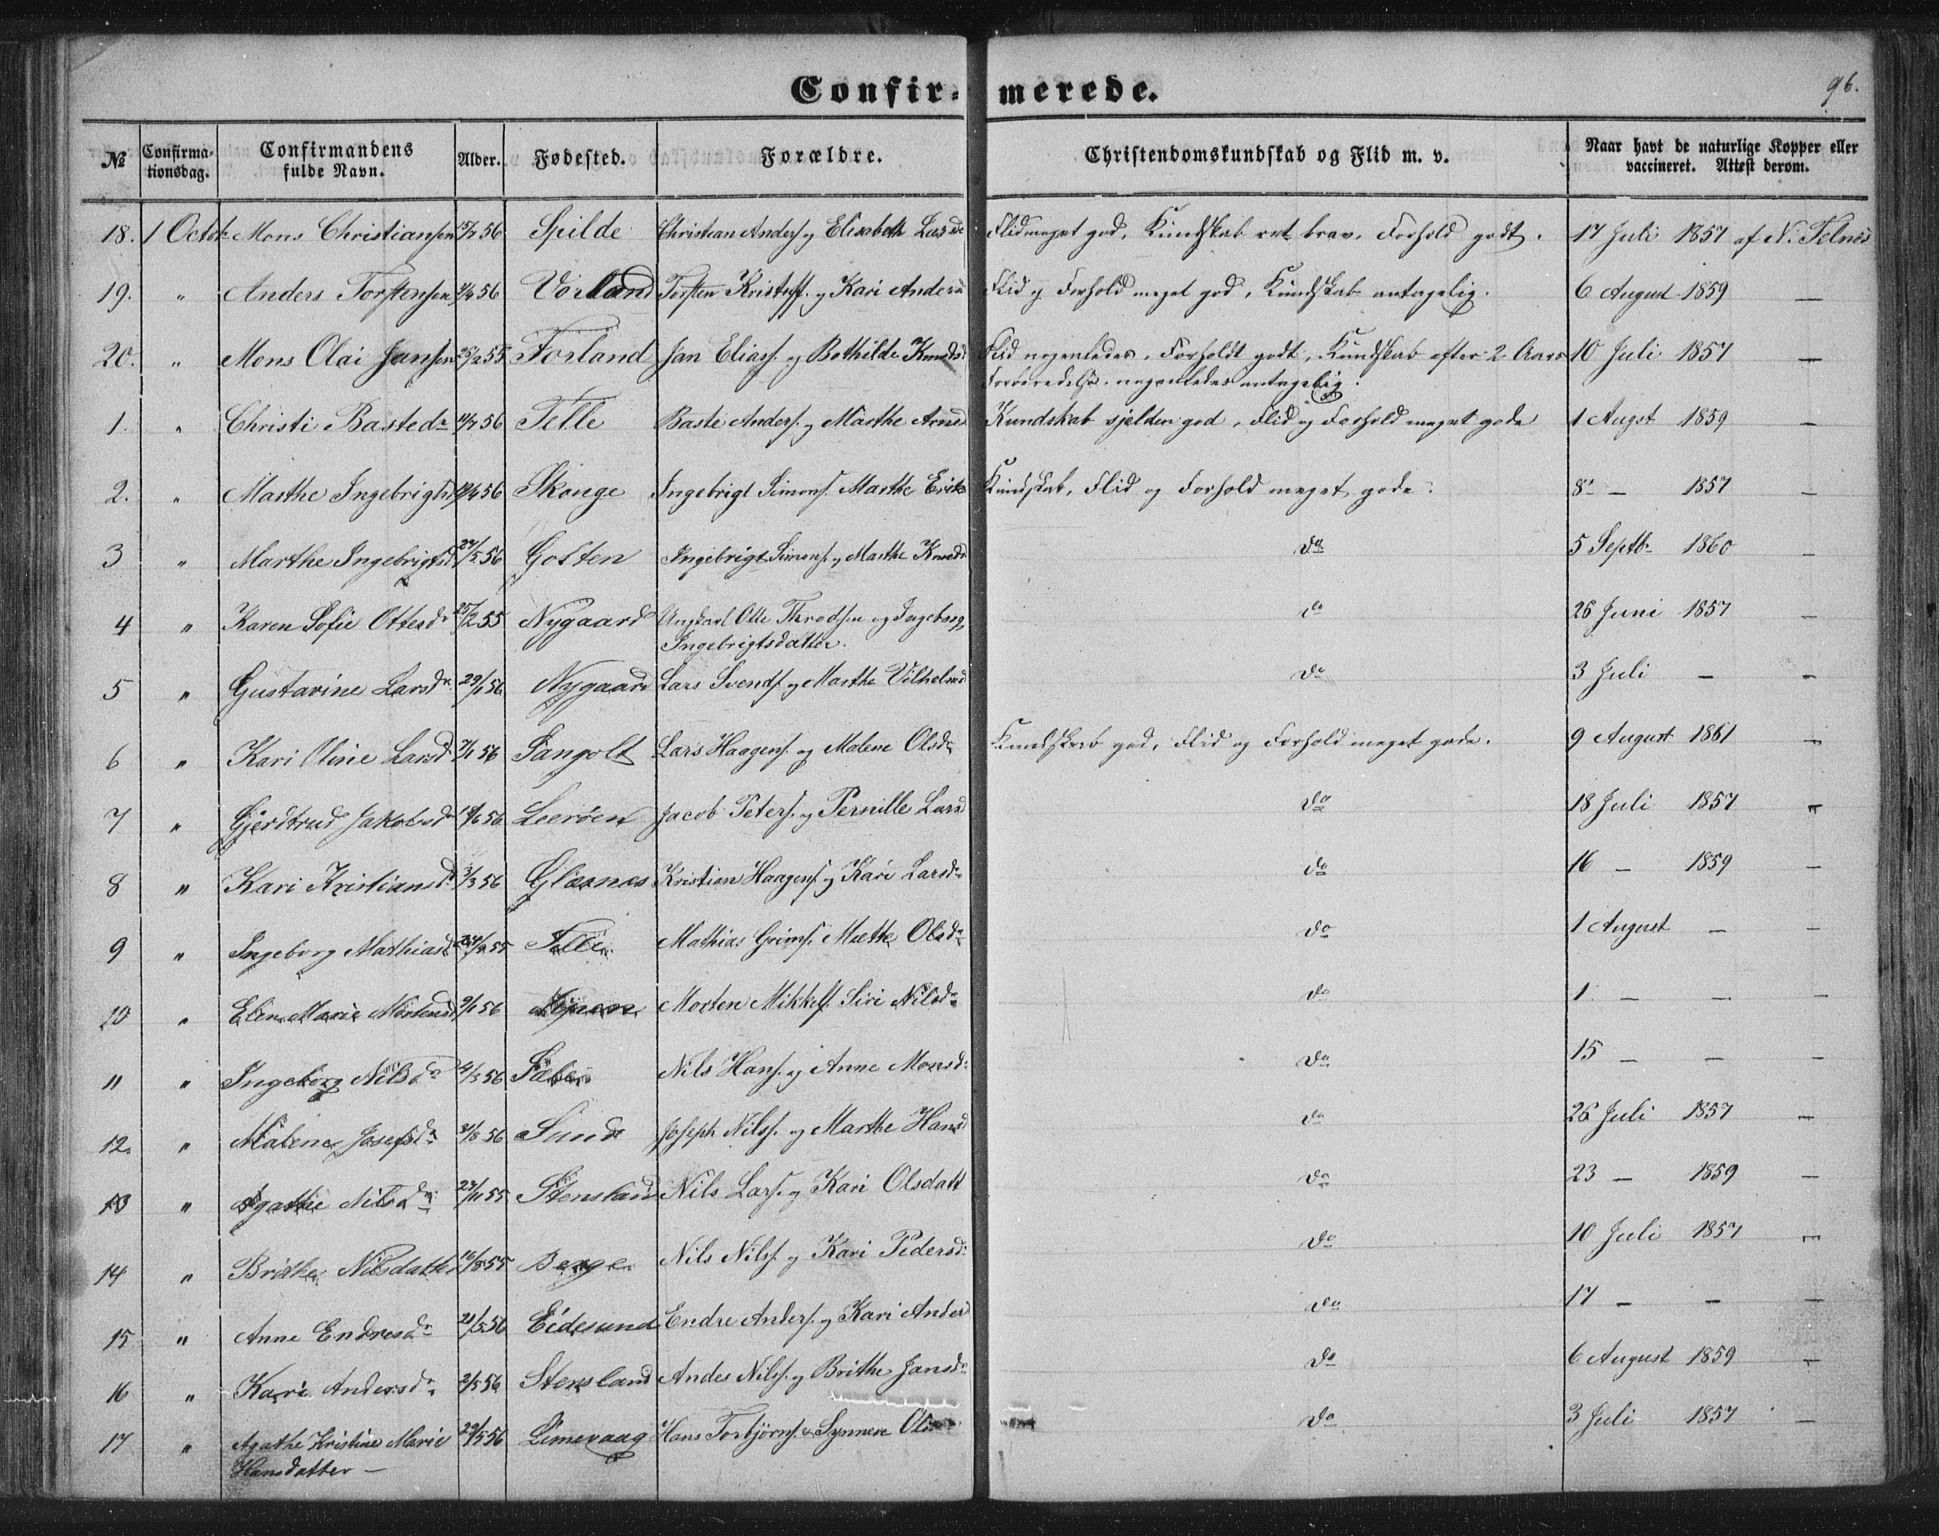 Confir- merede.
96.
№ Confirma- Confirmandens Alder. Fødested. Forældre. Christendomskundskab og Flid m. v. Naar havt de naturlige Kopper eller
tionsdag. fulde Navn. vaccineret. Attest derom.
18. 1 Octob Mons Christiansen 56 Spilde Christian Anders. og Elisabeth Flid meget god, Kundskab ret brav. Forhold godt. 17 Juli 1857 af N. Telnes
19. " Anders Torstensen 56 Vorland Torsten Kristoff. og Kari Flid og Forhold meget god, Kundskab antagelig. 6 August 1859 —
20. " Mons Olai Jansen 55 Forland Jan Eliass. og Bothilde Knudsd Flid nogenledes, Forholdt godt, Kundskab efter 2 Aars 10 Juli 1857 —
Forberedelse nogenledes antagelig.
1. " Christi Basted 56 Telle Baste Anders. og Marthe Arnes Kundskab sjelden god, Flid og Forhold meget gode 1 Augst 1859 —
2. " Marthe Ingebrigtsd 56 Skonge Ingebrigt Simons. Marthe Eriks Kundskab, Flid og Forhold meget gode. 8 — 1857 —
3 " Marthe Ingebrigtsd 56 Golten Ingebrigt Simons. og Marthe Knuds do 5 Septb 1860 —
4 " Karen Sofie Ottesd 25/2 55 Nygaard Ungkarl Otte Throdsen og Ingeborg do 26 Juni 1857 —
Ingebrigtsdatter.
5 " Gustavine Larsd 29/1 56 Nygaard Lars Svends. og Marthe Vilhelmsd do 3 Juli — —
6 " Kari Oline Larsd 56 Sangolt Lars Haagens. og Malene Olsd Kundskab god, Flid og Forhold meget gode. 9 August 1861 —
7 " Gjerdtrud Jakobsd 56 Leerøen Jacob Peters. og Pernille Larsd do 18 Juli 1857 "
8 " Kari Kristiansd 3/3 56 Glæsnes Kristian Haagens. og Kari Larsd do 16 — 1859 —
9 " Ingeborg Mathiasd 55 Telle Mathias Grims. Mætte Olsd do 1 August — —
10 " Elen Marie Mortensd 56 Morten Mikkels. Siri Nilsd do 1 — — —
11 " Ingeborg Nilsd 4/3 56 Nils Hans. og Anne Monsd do 15 — — —
12. " Malene Josefsd 56 Sund Joseph Nilss. og Marthe Hansd do 26 Juli 1857 —
13 " Agathe Nilsd 23/11 55 Stensland Nils Lars. og Kari Olsdatt do 23 — 1859 —
14 " Brithe Nilsdatter 55 Berge Nils Nilss. og Kari Pedersd do 10 Juli 1857 —
15 " Anne Endresd 21/5 56 Eidesund Endre Anders. og Kari Andersd do 17 — — —
16 " Kari Andersd 2/5 56 Stensland Andes Nilss. og Brithe Jansd do 6 August 1859 —
17 " Agathe Kristine Marie 29/5 56 Limevaag Hans Torbjørns. & Synneve do 3 Juli 1857 —
Hansdatter —